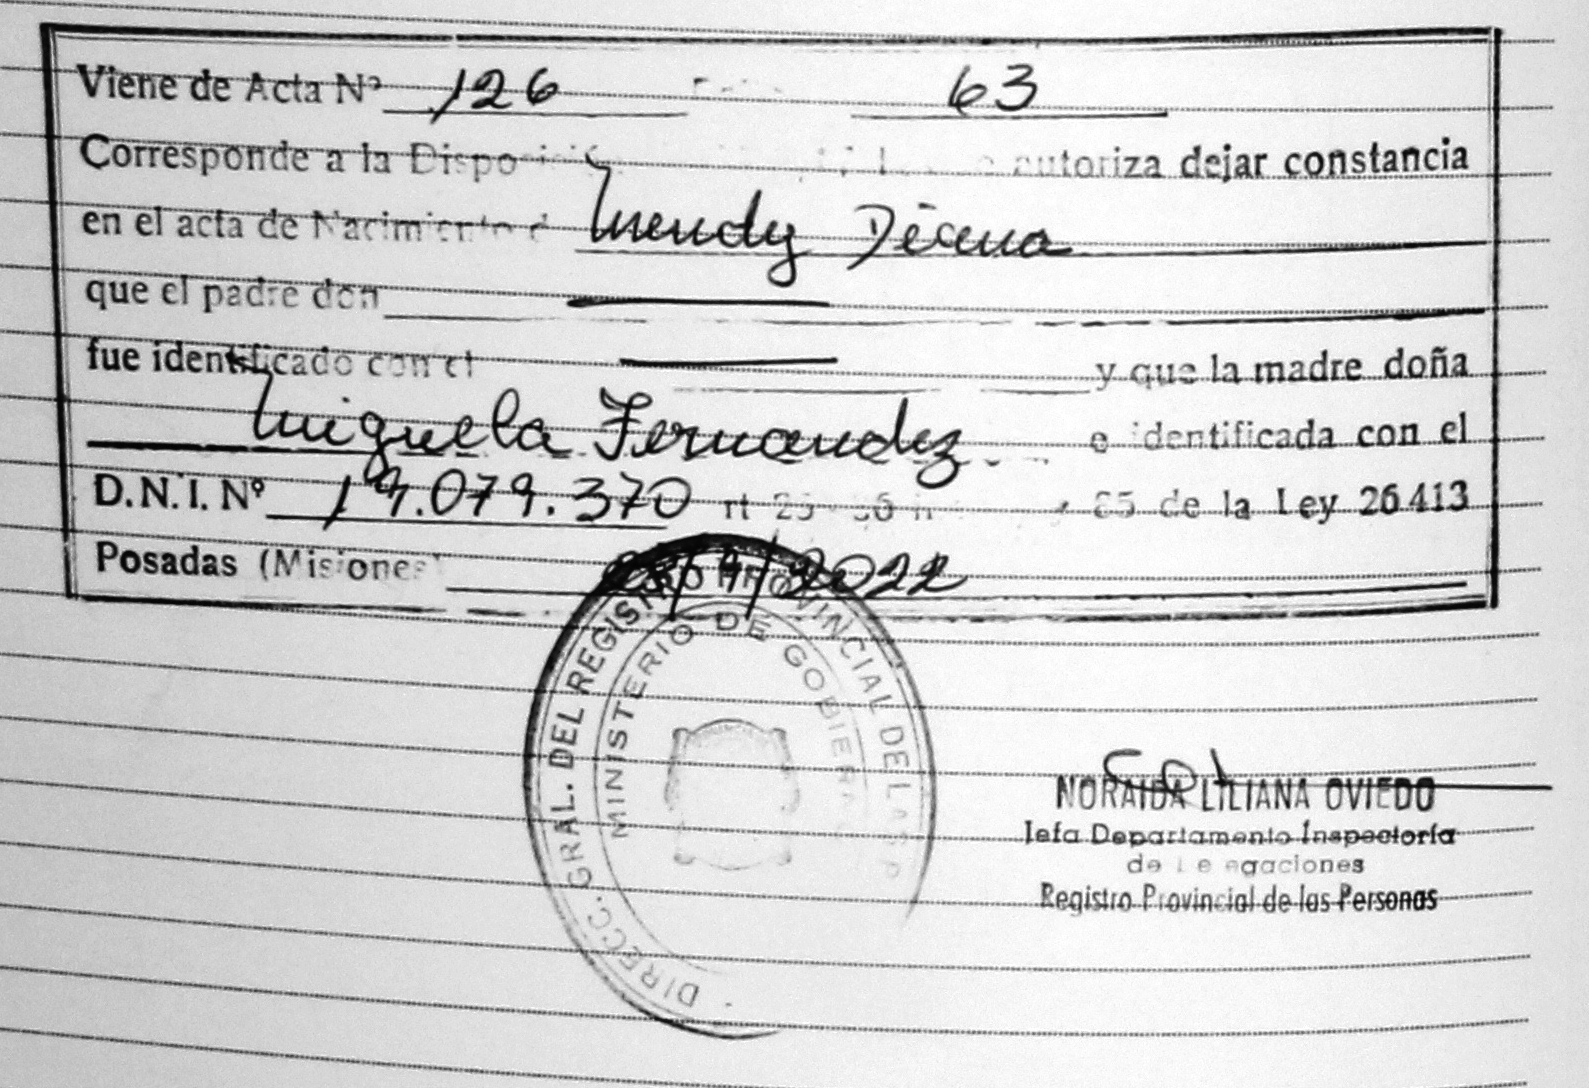 Viene de Acta Nº 126 63
Corresponde a la Disposición autoriza dejar constancia
en el acta de Nacimiento d Mendy Décena
que el padre don
fue identificado con el y que la madre doña
Miguela Fernandez e identificada con el
D.N.I. Nº 19.079.370 rt 25 y 85 de la Ley 26413
Posadas (Misiones) 2022
DIRECC. GRAL. DEL REGISTRO PROVINCIAL DE LAS P
MINISTERIO DE GOBIERN
NORAIDA LILIANA OVIEDO
Jefa Departamento Inspectoría
de Delegaciones
Registro Provincial de las Personas